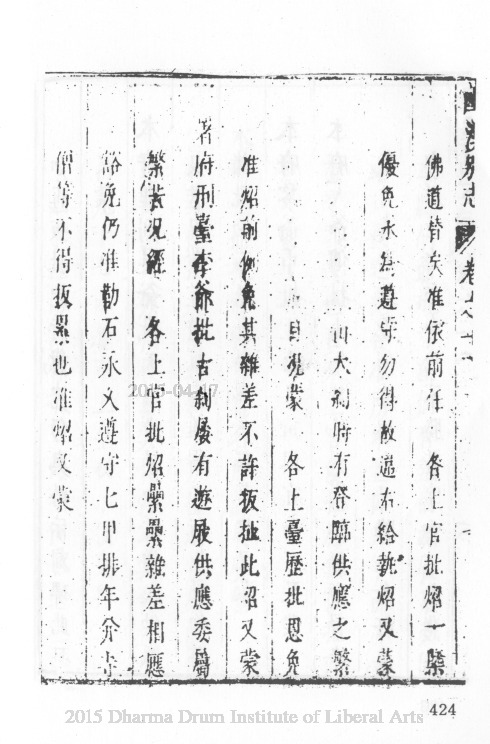 佛道皆矣准依前任 各上官批炤一槩
優免永為遵守勿得故違右給執炤又蒙
山大剎時有登臨供應之繁
且視蒙 各上臺歷批恩免
准炤前例免其雜差不許扳扯此炤又蒙
署府刑臺李爺批古剎屡有遊屐供應委屬
繁苦況經 各上官批炤纍纍雜差相應
豁免仍准勒石永久遵守七甲排年分寺
僧等不得扳累也准炤又蒙
2015-04-17
424
2015 Dharma Drum Institute of Liberal Arts